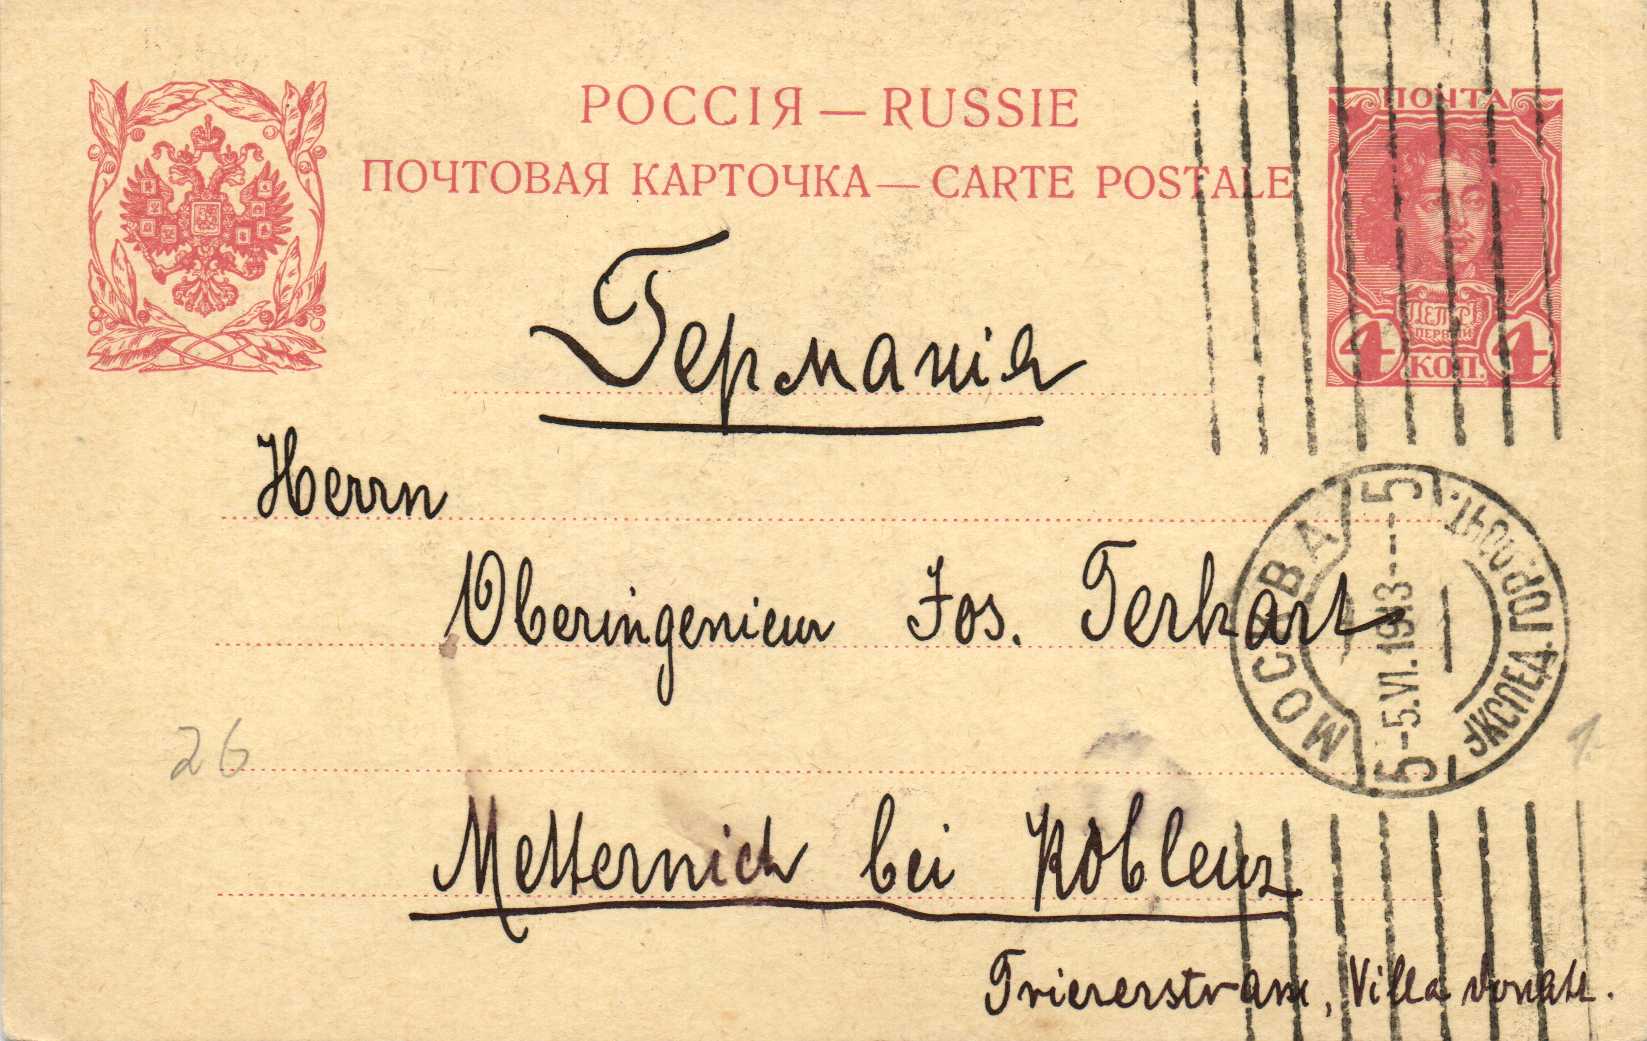 РОССІЯ — RUSSIE
ПОЧТОВАЯ КАРТОЧКА — CARTE POSTALE
ПОЧТА
ПЕТРЪ
ПЕРВЫЙ
4 КОП. 4
Германія
Herrn
Oberingenieur Jos. Terhart
МОСКВА
5
-5.VI.1913-
5
ЭКСПЕД. ГОР. ПОЧТ.
26
Metternich bei Koblenz
Triererstrasse, Villa Donath.